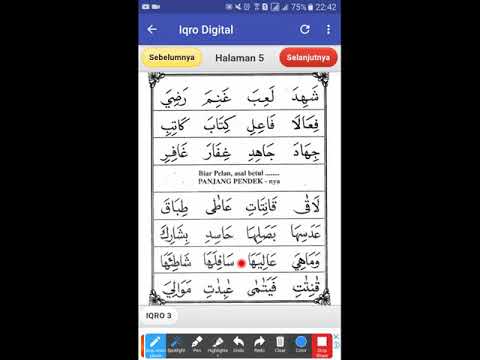 22:42
75%
Iqro Digital
Sebelumnya
Halaman 5
Selanjutnya
شَهِدَ لَعِبَ غَنِمَ رَضِيَ
فِعَالًا فَاعِلِ كِتَابَ كَاتِبِ
جِهَادَ جَاهِدِ غِفَارَ غَافِرِ
Biar Pelan, asal betul .......
PANJANG PENDEK - nya
لَاقٰى قَانِتَاتِ عَاطٰى طِبَاقَ
عَدَسِهَا بَصَلِهَا حَاسِدِ بِشَارِكَ
وَمَاهِيَ عَالِيَهَا سَافِلَهَا شَاطِئِهَا
قٰنِتٰتِ فَيَتٰمٰى عٰبِدٰتِ مَوَالِيَ
IQRO 3
Spotlight
Pen
Highlighter
Undo
Redo
Clear
Color